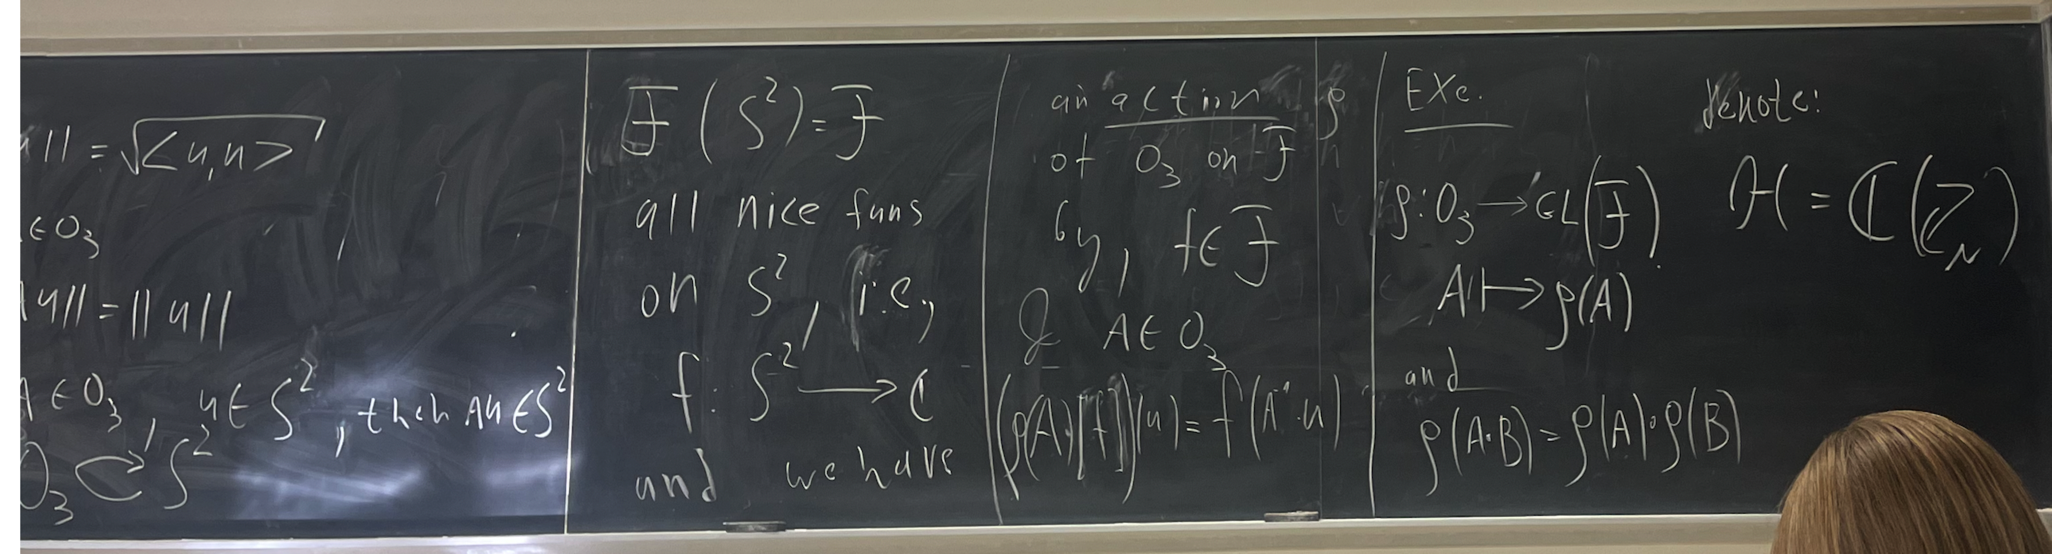 u|| = √<u,u>
∈ O₃
Au|| = ||u||
A ∈ O₃, u ∈ S², then Au ∈ S²
O₃ ↻ S²
F(S²) = F
all nice funs
on S², i.e.,
f: S² → ℂ
and we have
an action ρ
of O₃ on F
by, f ∈ F
& A ∈ O₃
(ρ(A)[f])(u) = f(A⁻¹·u)
Exe.
ρ: O₃ → GL(F).
A ↦ ρ(A)
and
ρ(A·B) = ρ(A)∘ρ(B)
denote:
H = ℂ(ℤ_N)